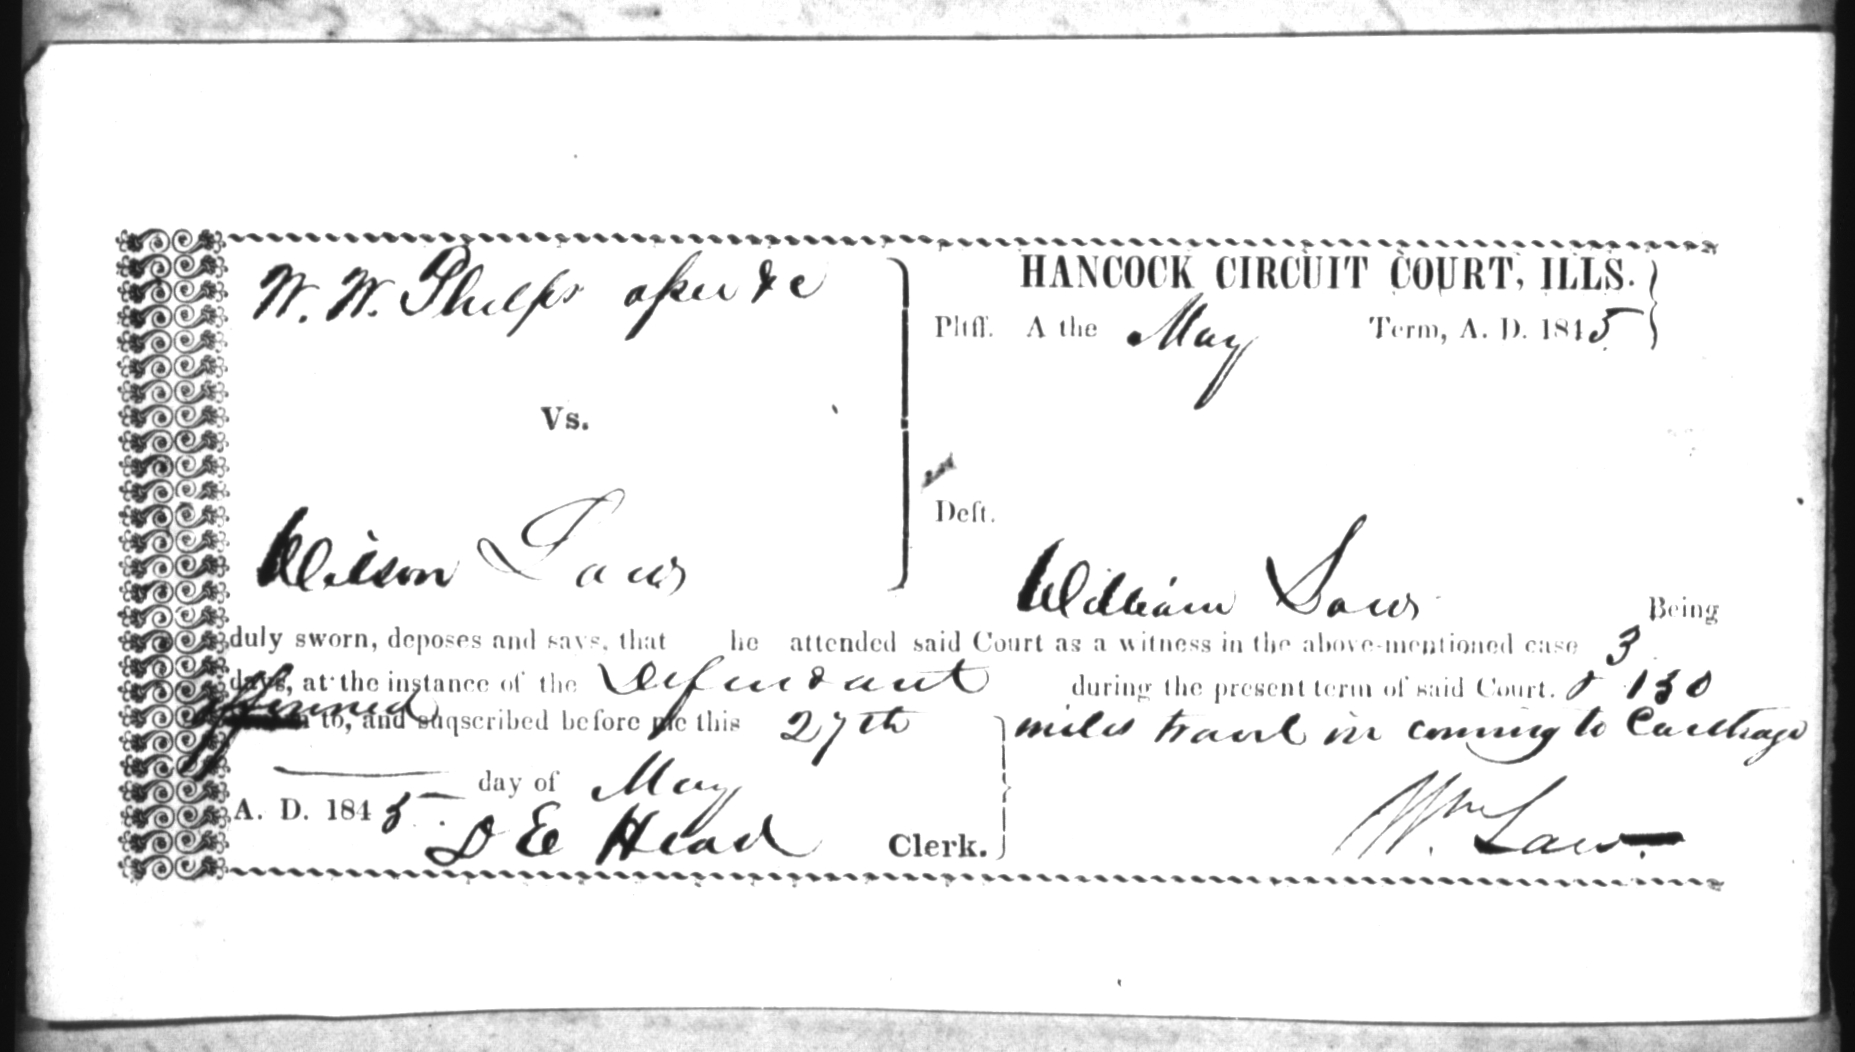 W. W. Phelps assee &c
HANCOCK CIRCUIT COURT, ILLS.
Pltff. A the May Term, A. D. 1845
Vs.
Deft.
Wilson Law
William Law Being
duly sworn, deposes and says, that he attended said Court as a witness in the above-mentioned case 3
days, at the instance of the Defendant during the present term of said Court. & 130
Affirmed to, and suqscribed before me this 27th
miles travel in coming to Carthage
day of May
A. D. 1845.
D E Head Clerk.
Wm Law